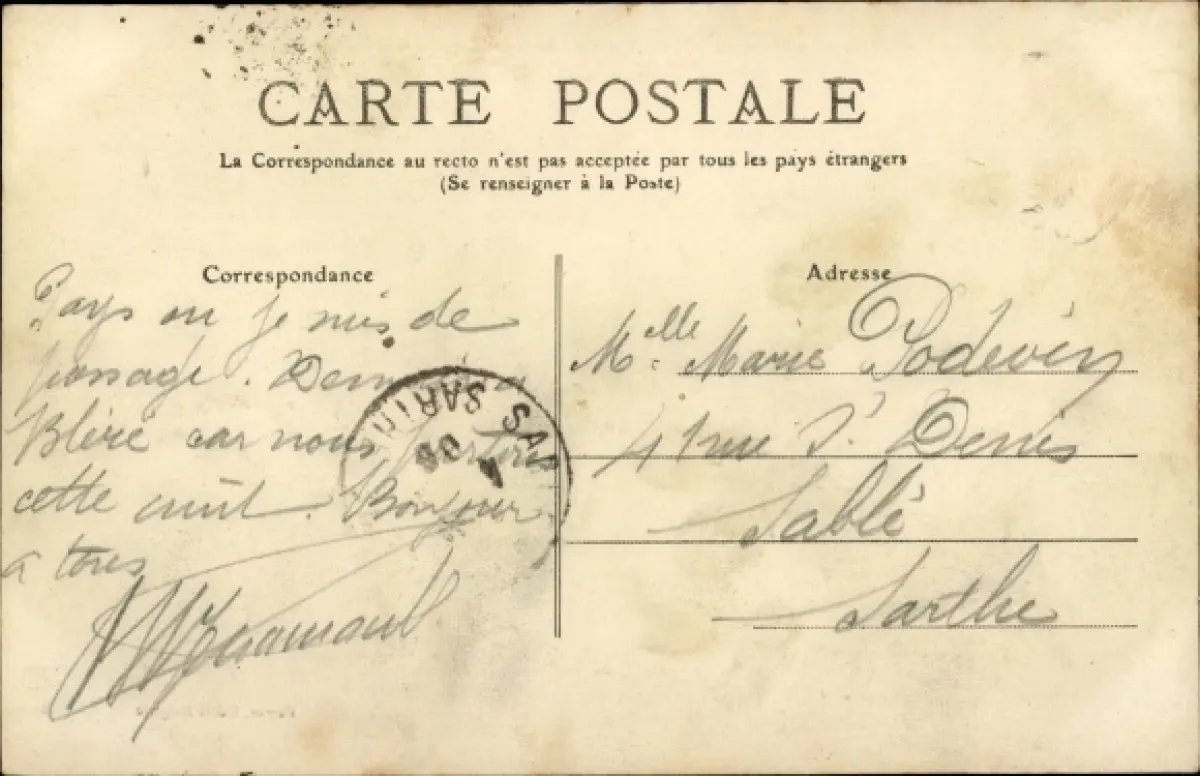 CARTE POSTALE
La Correspondance au recto n'est pas acceptée par tous les pays étrangers
(Se renseigner à la Poste)
Correspondance
Pays ou je suis de
passage.
Bléré car nous partons
cette nuit. Bonjour
a tous
Adresse
Mlle Marie Podevin
41 rue St Denis
Sablé
Sarthe
SARTHE